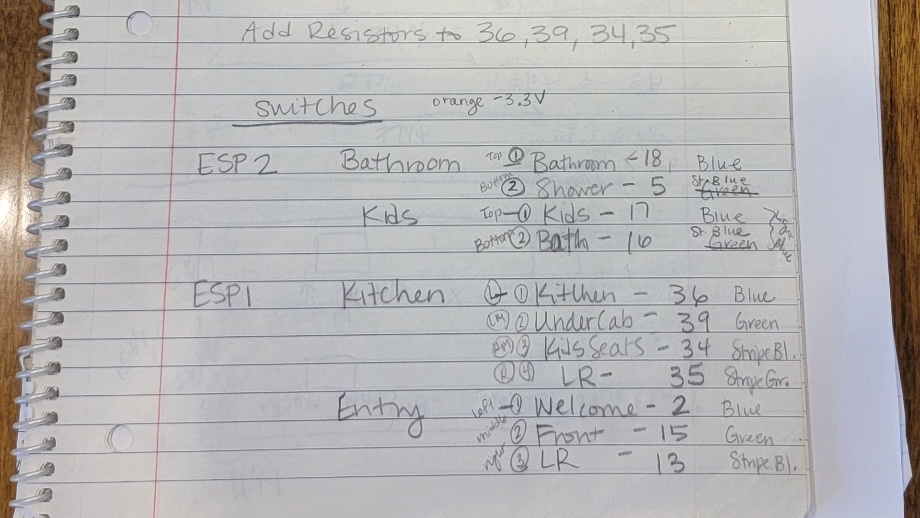 Add Resistors to 36, 39, 34, 35
Switches orange - 3.3V
ESP2 Bathroom Top ① Bathroom - 18 Blue
Bottom ② Shower - 5 St. Blue Green
Kids Top - ① Kids - 17 Blue
Bottom ② Bath - 16 St. Blue Green
ESP1 Kitchen L - ① Kitchen - 36 Blue
LM ② UnderCab - 39 Green
RM ③ Kids Seats - 34 Stripe Bl.
R ④ LR - 35 Stripe Gr.
Entry left - ① Welcome - 2 Blue
middle ② Front - 15 Green
right ③ LR - 13 Stripe Bl.